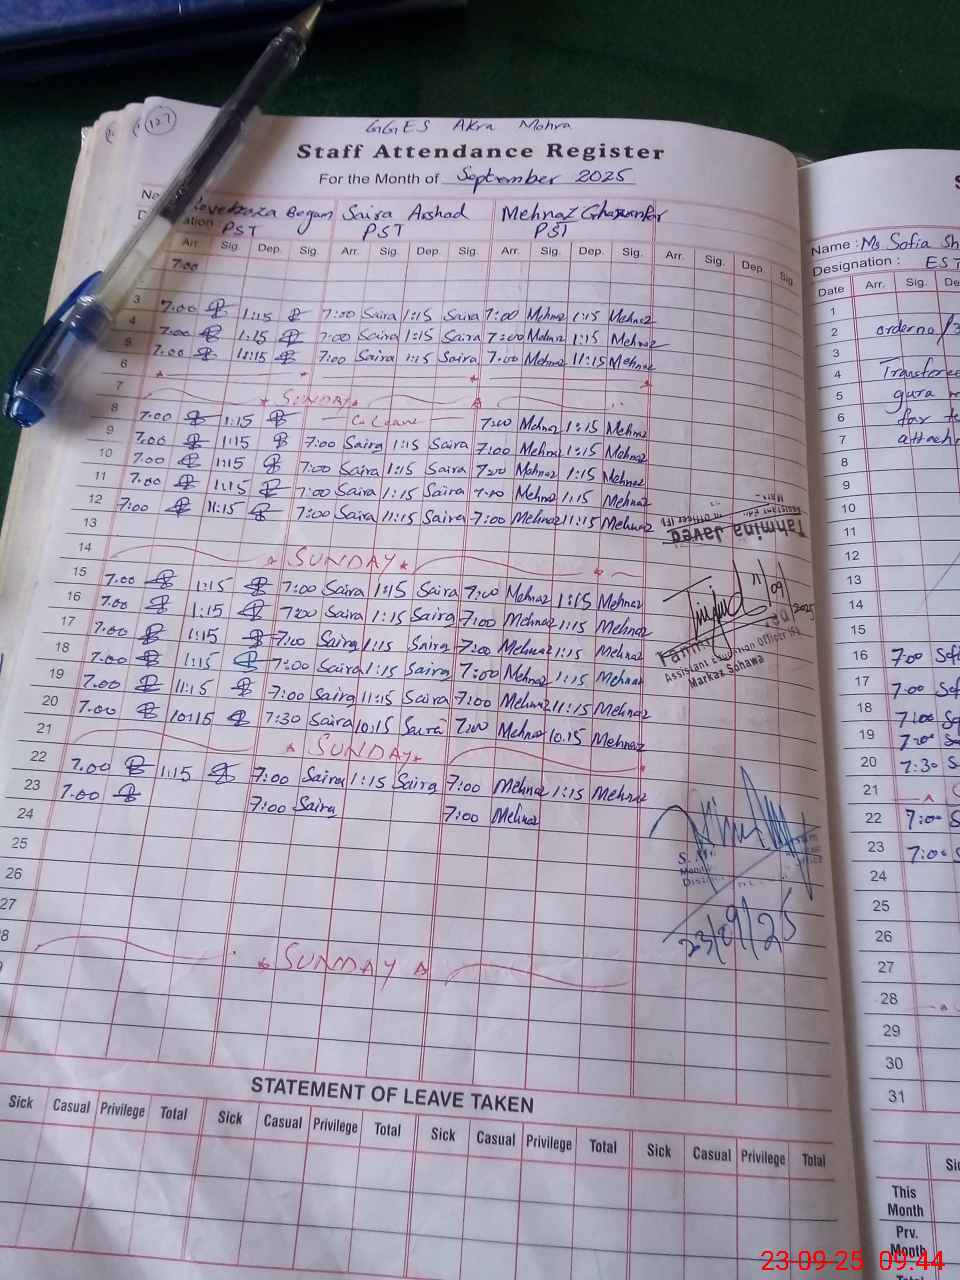 127
GGES Akra Mohra
Staff Attendance Register
For the Month of September 2025
Begam Saira Arshad Mehnaz Ghazanfar
PST PST PST
Arr. Sig. Dep. Sig. Arr. Sig. Dep. Sig. Arr. Sig. Dep. Sig. Arr. Sig. Dep. Sig.
7:00
3 7:00 1:15 7:00 Saira 1:15 Saira 7:00 Mehnaz 1:15 Mehnaz
4 7:00 1:15 7:00 Saira 1:15 Saira 7:00 Mehnaz 1:15 Mehnaz
5 7:00 11:15 7:00 Saira 1:15 Saira 7:00 Mehnaz 11:15 Mehnaz
6
7 SUNDAY
8 7:00 1:15 Leave 7:00 Mehnaz 1:15 Mehnaz
9 7:00 1:15 7:00 Saira 1:15 Saira 7:00 Mehnaz 1:15 Mehnaz
10 7:00 1:15 7:00 Saira 1:15 Saira 7:00 Mehnaz 1:15 Mehnaz
11 7:00 1:15 7:00 Saira 1:15 Saira 7:00 Mehnaz 1:15 Mehnaz
12 7:00 11:15 7:00 Saira 11:15 Saira 7:00 Mehnaz 11:15 Mehnaz
13
14 SUNDAY
15 7:00 1:15 7:00 Saira 1:15 Saira 7:00 Mehnaz 1:15 Mehnaz
16 7:00 1:15 7:00 Saira 1:15 Saira 7:00 Mehnaz 1:15 Mehnaz
17 7:00 1:15 7:00 Saira 1:15 Saira 7:00 Mehnaz 1:15 Mehnaz
18 7:00 1:15 7:00 Saira 1:15 Saira 7:00 Mehnaz 1:15 Mehnaz
19 7:00 11:15 7:00 Saira 11:15 Saira 7:00 Mehnaz 11:15 Mehnaz
20 7:00 10:15 7:30 Saira 10:15 Saira 7:00 Mehnaz 10:15 Mehnaz
21 SUNDAY
22 7:00 1:15 7:00 Saira 1:15 Saira 7:00 Mehnaz 1:15 Mehnaz
23 7:00 7:00 Saira 7:00 Mehnaz
24
25
26
27
28 SUNDAY
Tahmina Javed
11/09/2025
Assistant Education Officer
Markaz Sohawa
23/09/25
STATEMENT OF LEAVE TAKEN
Sick Casual Privilege Total Sick Casual Privilege Total Sick Casual Privilege Total Sick Casual Privilege Total
Name : Ms Sofia Sh
Designation : EST
Date Arr. Sig. De
1
2 order no
3
4 Transferred
5
6 for
7 attach
8
9
10
11
12
13
14
15
16 7:00 Sof
17 7:00 Sof
18 7:00 Sof
19 7:00 Sof
20 7:30 S
21
22 7:00 S
23 7:00 S
24
25
26
27
28
29
30
31
This Month
Prv. Month
23-09-25 09:44